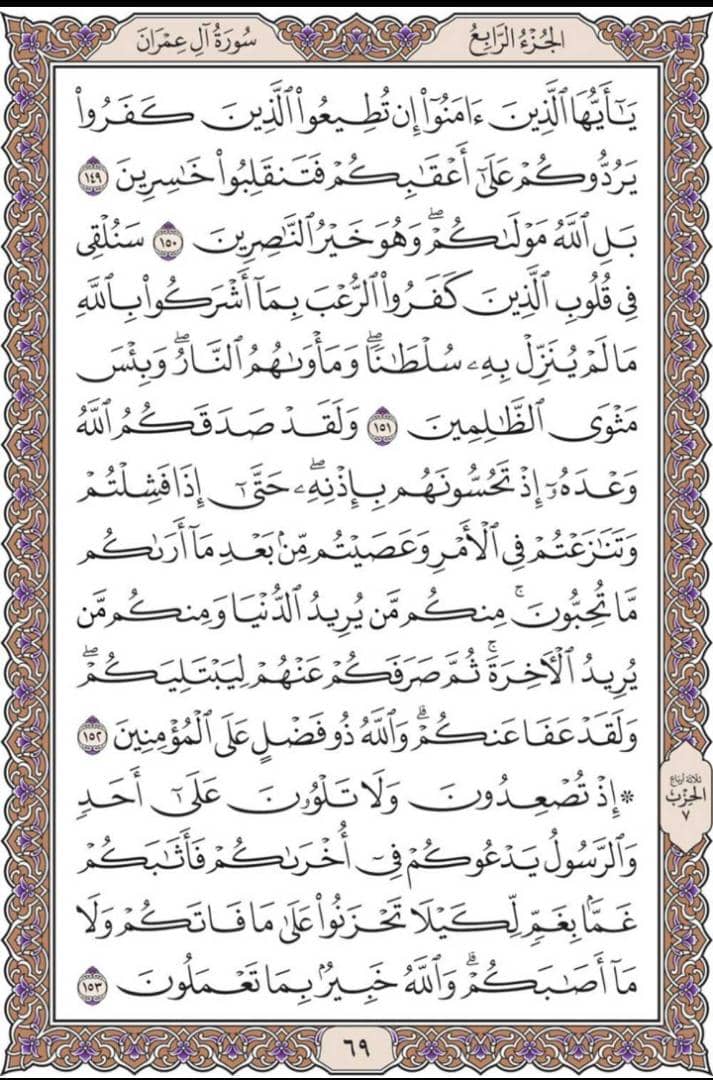 الجُزْءُ الرَّابِعُ
سُورَةُ آلِ عِمْرَانَ
يَـٰٓأَيُّهَا ٱلَّذِينَ ءَامَنُوٓا۟ إِن تُطِيعُوا۟ ٱلَّذِينَ كَفَرُوا۟
يَرُدُّوكُمْ عَلَىٰٓ أَعْقَـٰبِكُمْ فَتَنقَلِبُوا۟ خَـٰسِرِينَ ١٤٩
بَلِ ٱللَّهُ مَوْلَىٰكُمْ ۖ وَهُوَ خَيْرُ ٱلنَّـٰصِرِينَ ١٥٠ سَنُلْقِى
فِى قُلُوبِ ٱلَّذِينَ كَفَرُوا۟ ٱلرُّعْبَ بِمَآ أَشْرَكُوا۟ بِٱللَّهِ
مَا لَمْ يُنَزِّلْ بِهِۦ سُلْطَـٰنًا ۖ وَمَأْوَىٰهُمُ ٱلنَّارُ ۖ وَبِئْسَ
مَثْوَى ٱلظَّـٰلِمِينَ ١٥١ وَلَقَدْ صَدَقَكُمُ ٱللَّهُ
وَعْدَهُۥٓ إِذْ تَحُسُّونَهُم بِإِذْنِهِۦ ۖ حَتَّىٰٓ إِذَا فَشِلْتُمْ
وَتَنَـٰزَعْتُمْ فِى ٱلْأَمْرِ وَعَصَيْتُم مِّنۢ بَعْدِ مَآ أَرَىٰكُم
مَّا تُحِبُّونَ ۚ مِنكُم مَّن يُرِيدُ ٱلدُّنْيَا وَمِنكُم مَّن
يُرِيدُ ٱلْـَٔاخِرَةَ ۚ ثُمَّ صَرَفَكُمْ عَنْهُمْ لِيَبْتَلِيَكُمْ ۖ
وَلَقَدْ عَفَا عَنكُمْ ۗ وَٱللَّهُ ذُو فَضْلٍ عَلَى ٱلْمُؤْمِنِينَ ١٥٢
۞ إِذْ تُصْعِدُونَ وَلَا تَلْوُۥنَ عَلَىٰٓ أَحَدٍ
وَٱلرَّسُولُ يَدْعُوكُمْ فِىٓ أُخْرَىٰكُمْ فَأَثَـٰبَكُمْ
غَمًّۢا بِغَمٍّ لِّكَيْلَا تَحْزَنُوا۟ عَلَىٰ مَا فَاتَكُمْ وَلَا
مَآ أَصَـٰبَكُمْ ۗ وَٱللَّهُ خَبِيرٌۢ بِمَا تَعْمَلُونَ ١٥٣
ثلاثة أرباع
الحِزْب
٧
٦٩